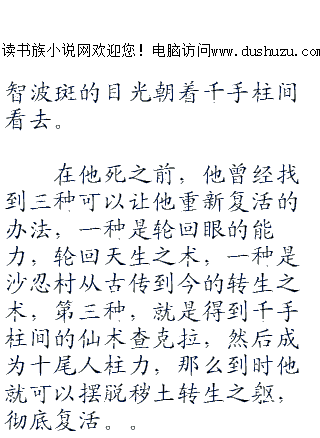 读书族小说网欢迎您！电脑访问www.dushuzu.com
智波斑的目光朝着千手柱间
看去。
在他死之前，他曾经找
到三种可以让他重新复活的
办法，一种是轮回眼的能
力，轮回天生之术，一种是
沙忍村从古传到今的转生之
术，第三种，就是得到千手
柱间的仙术查克拉，然后成
为十尾人柱力，那么到时他
就可以摆脱秽土转生之躯，
彻底复活。。